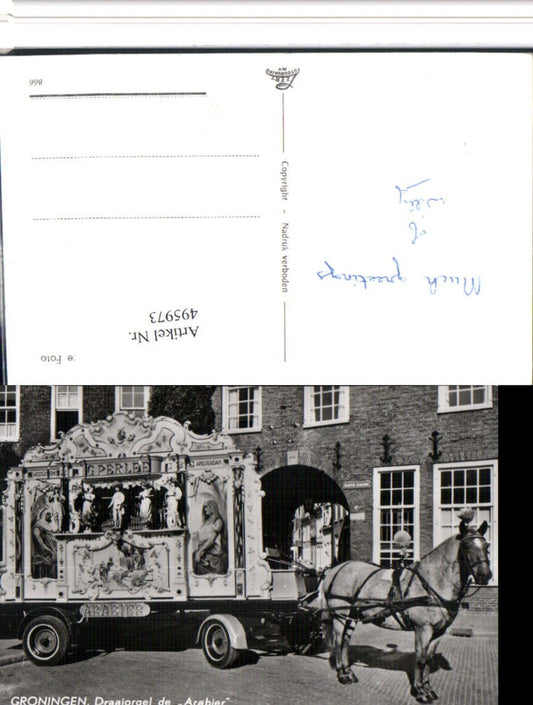 Much greetings
of
866
Copyright - Nadruk verboden
Artikel Nr.
495973
e Foto
G. PERLEE
AMSTERDAM
ARABIER
GRONINGEN. Draaiorgel de „Arabier"